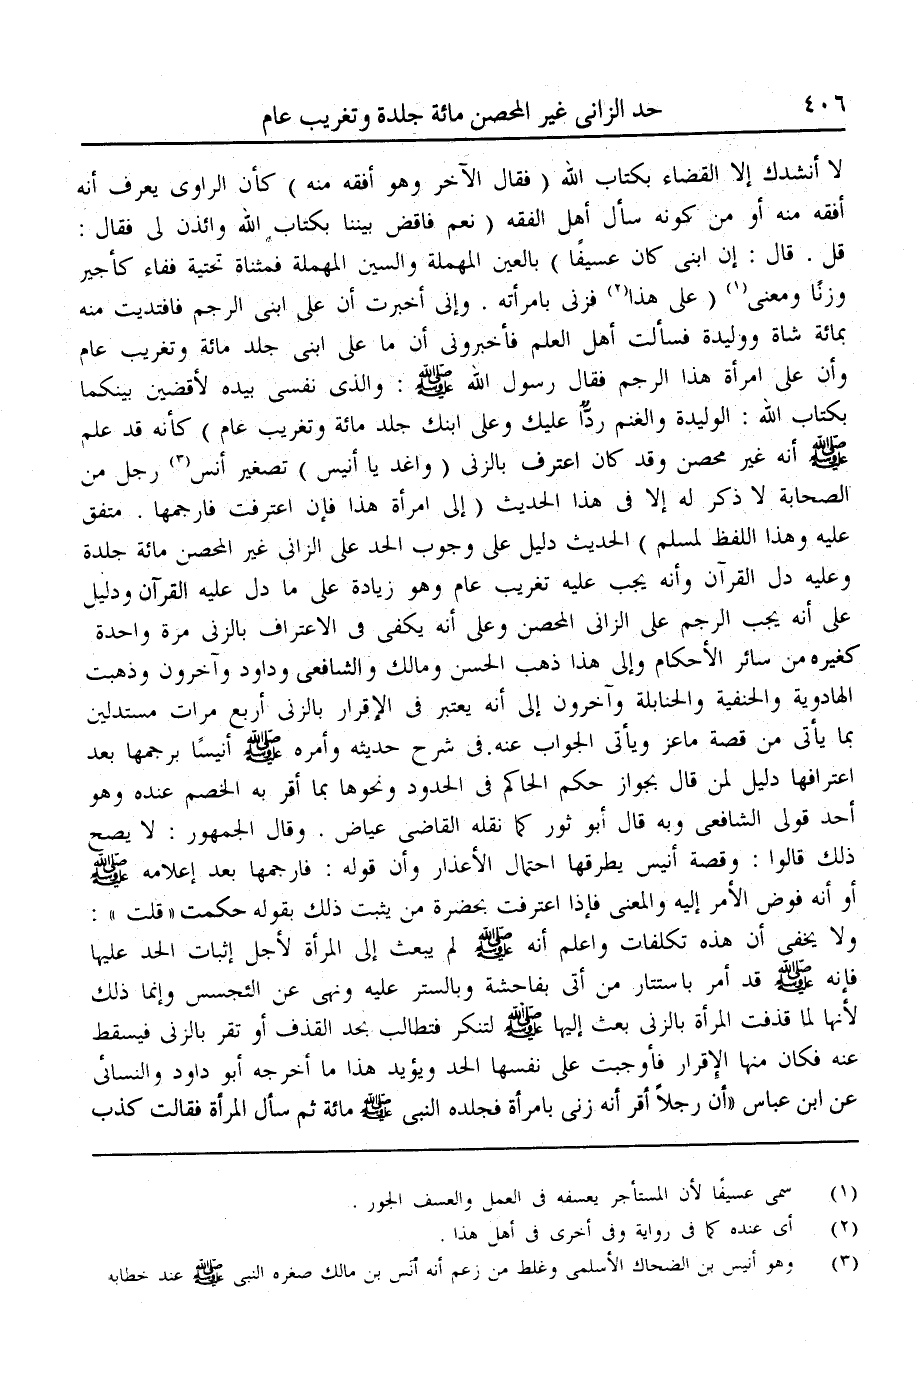 ٤٠٦
حد الزانى غير المحصن مائة جلدة وتغريب عام
لا أنشدك إلا القضاء بكتاب الله ( فقال الآخر وهو أفقه منه ) كأن الراوى يعرف أنه
أفقه منه أو من كونه سأل أهل الفقه ( نعم فاقض بيننا بكتاب الله وائذن لى فقال :
قل . قال : إن ابنى كان عسيفًا ) بالعين المهملة والسين المهملة فمثناة تحتية ففاء كأجير
وزنًا ومعنى(١) ( على هذا(٢) فزنى بامرأته . وإنى أخبرت أن على ابنى الرجم فافتديت منه
بمائة شاة ووليدة فسألت أهل العلم فأخبرونى أن ما على ابنى جلد مائة وتغريب عام
وأن على امرأة هذا الرجم فقال رسول الله ﷺ : والذى نفسى بيده لأقضين بينكما
بكتاب الله : الوليدة والغنم ردٌّ عليك وعلى ابنك جلد مائة وتغريب عام ) كأنه قد علم
ﷺ أنه غير محصن وقد كان اعترف بالزنى ( واغد يا أنيس ) تصغير أنس(٣) رجل من
الصحابة لا ذكر له إلا فى هذا الحديث ( إلى امرأة هذا فإن اعترفت فارجمها . متفق
عليه وهذا اللفظ لمسلم ) الحديث دليل على وجوب الحد على الزانى غير المحصن مائة جلدة
وعليه دل القرآن وأنه يجب عليه تغريب عام وهو زيادة على ما دل عليه القرآن ودليل
على أنه يجب الرجم على الزانى المحصن وعلى أنه يكفى فى الاعتراف بالزنى مرة واحدة
كغيره من سائر الأحكام وإلى هذا ذهب الحسن ومالك والشافعى وداود وآخرون وذهبت
الهادوية والحنفية والحنابلة وآخرون إلى أنه يعتبر فى الإقرار بالزنى أربع مرات مستدلين
بما يأتى من قصة ماعز ويأتى الجواب عنه فى شرح حديثه وأمره ﷺ أنيسًا برجمها بعد
اعترافها دليل لمن قال بجواز حكم الحاكم فى الحدود ونحوها بما أقر به الخصم عنده وهو
أحد قولى الشافعى وبه قال أبو ثور كما نقله القاضى عياض . وقال الجمهور : لا يصح
ذلك قالوا : وقصة أنيس يطرقها احتمال الأعذار وأن قوله : فارجمها بعد إعلامه ﷺ
أو أنه فوض الأمر إليه والمعنى فإذا اعترفت بحضرة من يثبت ذلك بقوله حكمت «قلت» :
ولا يخفى أن هذه تكلفات واعلم أنه ﷺ لم يبعث إلى المرأة لأجل إثبات الحد عليها
فإنه ﷺ قد أمر باستتار من أتى بفاحشة وبالستر عليه ونهى عن التجسس وإنما ذلك
لأنها لما قذفت المرأة بالزنى بعث إليها ﷺ لتنكر فتطالب بحد القذف أو تقر بالزنى فيسقط
عنه فكان منها الإقرار فأوجبت على نفسها الحد ويؤيد هذا ما أخرجه أبو داود والنسائى
عن ابن عباس «أن رجلاً أقر أنه زنى بامرأة فجلده النبى ﷺ مائة ثم سأل المرأة فقالت كذب
(١) سمى عسيفًا لأن المستأجر يعسفه فى العمل والعسف الجور .
(٢) أى عنده كما فى رواية وفى أخرى فى أهل هذا .
(٣) وهو أنيس بن الضحاك الأسلمى وغلط من زعم أنه أنس بن مالك صغره النبى ﷺ عند خطابه